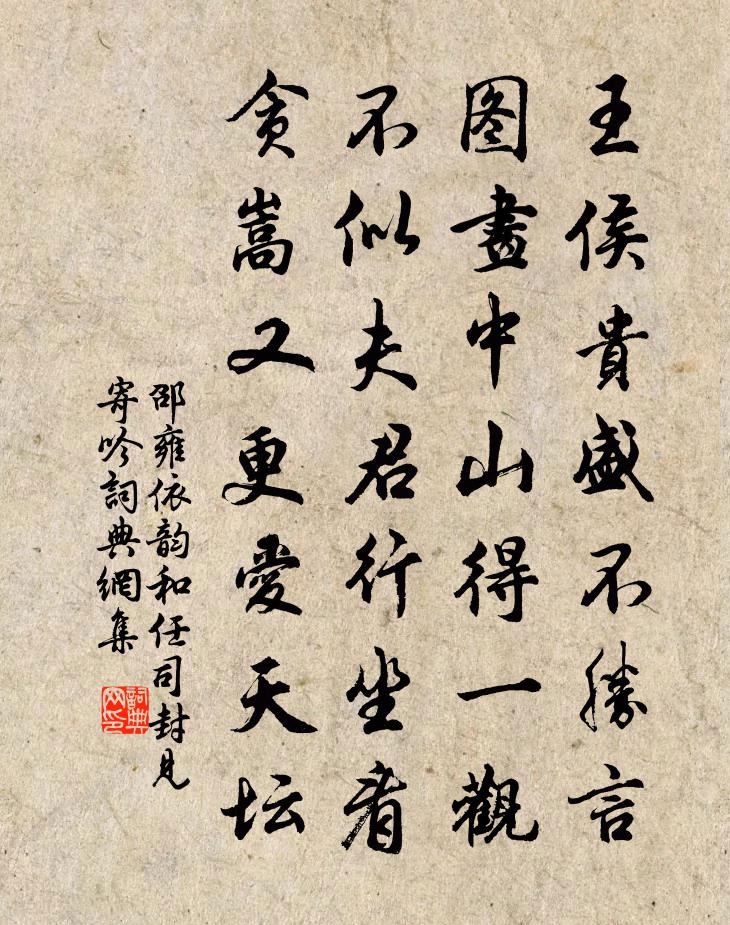 王侯貴盛不勝言
图畫中山得一觀
不似夫君行坐看
貪嵩又更愛天坛
邵雍依韵和任司封見
寄吟詞典網集
詞典网印